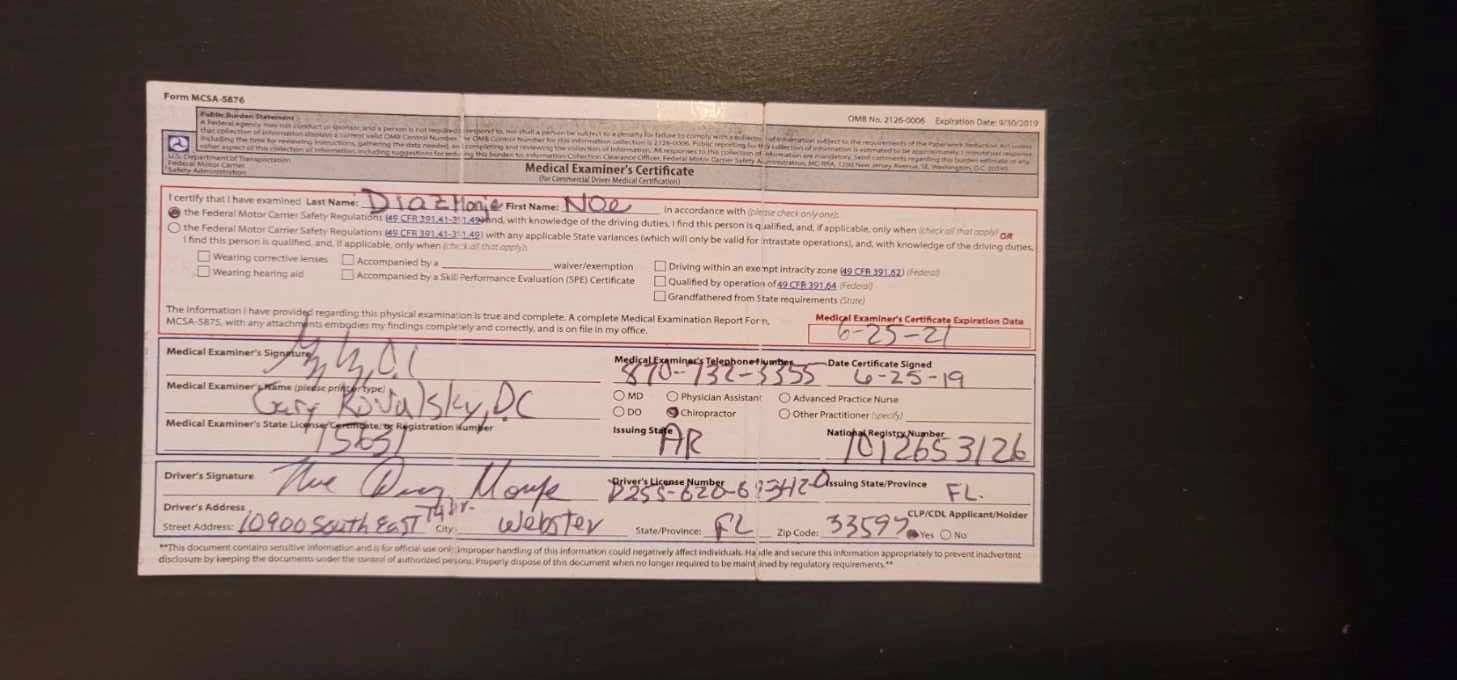 Form MCSA-5876
OMB No. 2126-0006 Expiration Date: 9/30/2019
Public Burden Statement
A Federal agency may not conduct or sponsor, and a person is not required to respond to, nor shall a person be subject to a penalty for failure to comply with a collection of information subject to the requirements of the Paperwork Reduction Act unless
that collection of information displays a current valid OMB Control Number. The OMB Control Number for this information collection is 2126-0006. Public reporting for this collection of information is estimated to be approximately 1 minute per response,
including the time for reviewing instructions, gathering the data needed, and completing and reviewing the collection of information. All responses to this collection of information are mandatory. Send comments regarding this burden estimate or any
other aspect of this collection of information, including suggestions for reducing this burden to: Information Collection Clearance Officer, Federal Motor Carrier Safety Administration, MC-RRA, 1200 New Jersey Avenue, SE, Washington, D.C. 20590
U.S. Department of Transportation
Federal Motor Carrier
Safety Administration
Medical Examiner's Certificate
(for Commercial Driver Medical Certification)
I certify that I have examined Last Name: Diaz Monje First Name: Noe in accordance with (please check only one):
the Federal Motor Carrier Safety Regulations (49 CFR 391.41-391.49) and, with knowledge of the driving duties, I find this person is qualified, and, if applicable, only when (check all that apply) OR
the Federal Motor Carrier Safety Regulations (49 CFR 391.41-391.49) with any applicable State variances (which will only be valid for intrastate operations), and, with knowledge of the driving duties,
I find this person is qualified, and, if applicable, only when (check all that apply):
Wearing corrective lenses Accompanied by a waiver/exemption Driving within an exempt intracity zone (49 CFR 391.62) (Federal)
Wearing hearing aid Accompanied by a Skill Performance Evaluation (SPE) Certificate Qualified by operation of 49 CFR 391.64 (Federal)
Grandfathered from State requirements (State)
The information I have provided regarding this physical examination is true and complete. A complete Medical Examination Report Form,
MCSA-5875, with any attachments embodies my findings completely and correctly, and is on file in my office.
Medical Examiner's Certificate Expiration Date
6-25-21
Medical Examiner's Signature
Medical Examiner's Telephone Number 870-732-3355
Date Certificate Signed 6-25-19
Medical Examiner's Name (please print or type)
Gary Kovalsky, DC
MD Physician Assistant Advanced Practice Nurse
DO Chiropractor Other Practitioner (specify)
Medical Examiner's State License, Certificate, or Registration Number
15631
Issuing State AR
National Registry Number 1012653126
Driver's Signature
Driver's License Number
Issuing State/Province FL.
Driver's Address
Street Address: 10900 South East City: Webster State/Province: FL Zip Code: 33597
CLP/CDL Applicant/Holder
Yes No
**This document contains sensitive information and is for official use only. Improper handling of this information could negatively affect individuals. Handle and secure this information appropriately to prevent inadvertent
disclosure by keeping the documents under the control of authorized persons. Properly dispose of this document when no longer required to be maintained by regulatory requirements.**